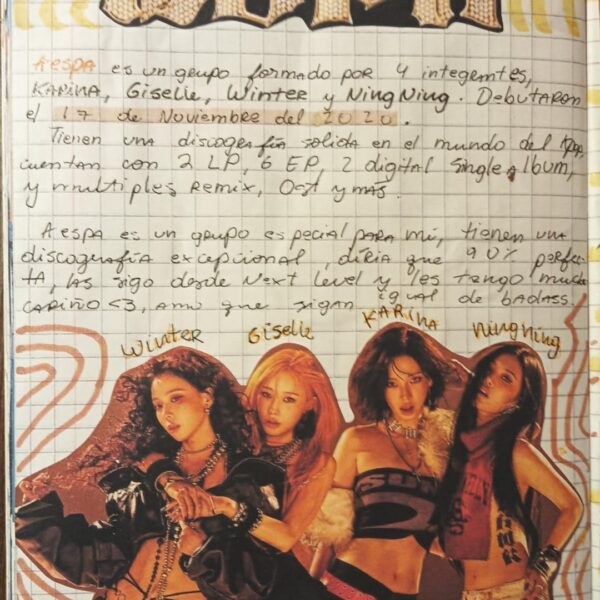 Aespa es un grupo formado por 4 integrantes,
KARINA, Giselle, Winter y NingNing. Debutaron
el 17 de Noviembre del 2020.
Tienen una discografía solida en el mundo del Kpop,
cuentan con 2 LP, 6 EP, 2 digital single album,
y multiples Remix, Ost y más.
Aespa es un grupo especial para mí, tienen una
discografía excepcional, diría que 90% perfec-
ta, las sigo desde Next level y les tengo mucho
cariño <3, amo que sigan igual de badass
Winter Giselle KARINA NingNing